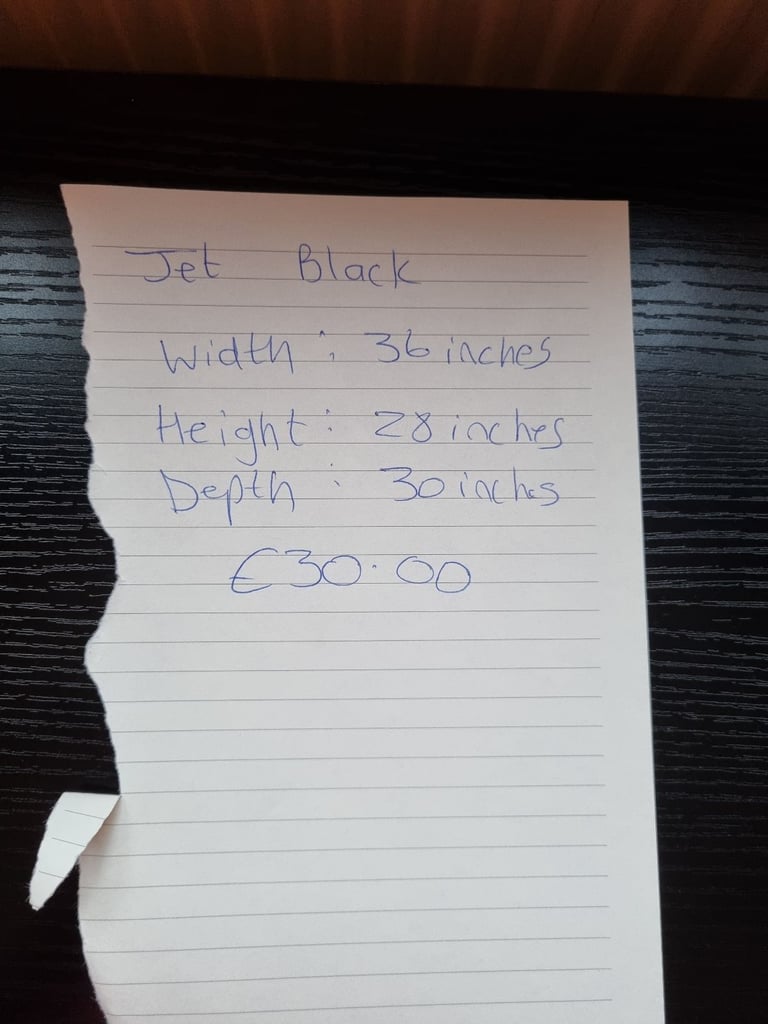 Jet Black
Width : 36 inches
Height : 28 inches
Depth : 30 inches
£30.00